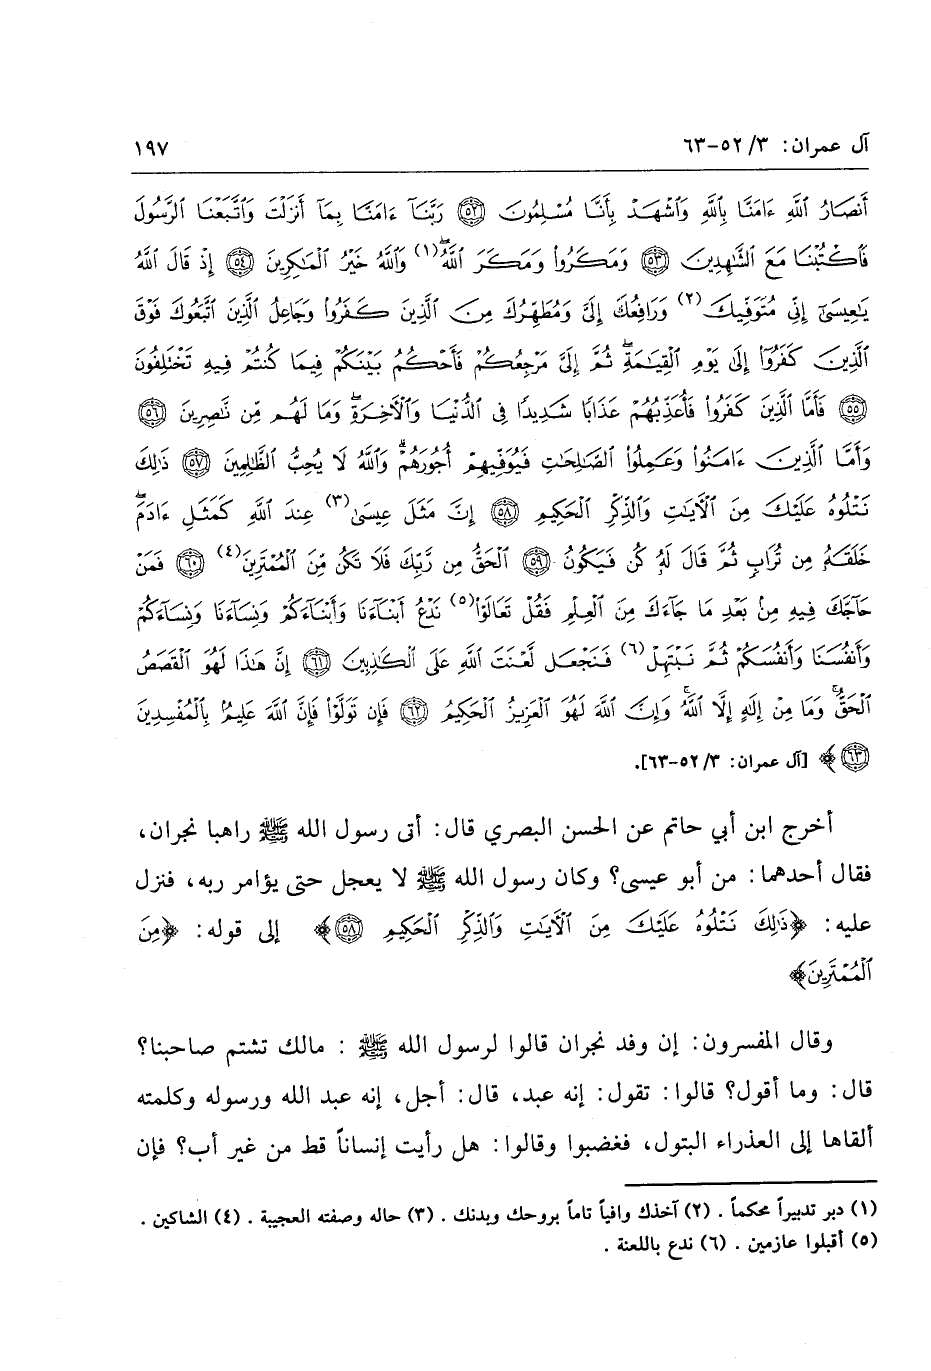 آل عمران: ٣/ ٥٢-٦٣ ١٩٧
أَنصَارُ ٱللَّهِ ءَامَنَّا بِٱللَّهِ وَٱشْهَدْ بِأَنَّا مُسْلِمُونَ ۝٥٢ رَبَّنَآ ءَامَنَّا بِمَآ أَنزَلْتَ وَٱتَّبَعْنَا ٱلرَّسُولَ
فَٱكْتُبْنَا مَعَ ٱلشَّٰهِدِينَ ۝٥٣ وَمَكَرُوا۟ وَمَكَرَ ٱللَّهُۖ(١) وَٱللَّهُ خَيْرُ ٱلْمَٰكِرِينَ ۝٥٤ إِذْ قَالَ ٱللَّهُ
يَٰعِيسَىٰٓ إِنِّى مُتَوَفِّيكَ(٢) وَرَافِعُكَ إِلَىَّ وَمُطَهِّرُكَ مِنَ ٱلَّذِينَ كَفَرُوا۟ وَجَاعِلُ ٱلَّذِينَ ٱتَّبَعُوكَ فَوْقَ
ٱلَّذِينَ كَفَرُوٓا۟ إِلَىٰ يَوْمِ ٱلْقِيَٰمَةِۖ ثُمَّ إِلَىَّ مَرْجِعُكُمْ فَأَحْكُمُ بَيْنَكُمْ فِيمَا كُنتُمْ فِيهِ تَخْتَلِفُونَ
۝٥٥ فَأَمَّا ٱلَّذِينَ كَفَرُوا۟ فَأُعَذِّبُهُمْ عَذَابًا شَدِيدًا فِى ٱلدُّنْيَا وَٱلْءَاخِرَةِۖ وَمَا لَهُم مِّن نَّٰصِرِينَ ۝٥٦
وَأَمَّا ٱلَّذِينَ ءَامَنُوا۟ وَعَمِلُوا۟ ٱلصَّٰلِحَٰتِ فَيُوَفِّيهِمْ أُجُورَهُمْۗ وَٱللَّهُ لَا يُحِبُّ ٱلظَّٰلِمِينَ ۝٥٧ ذَٰلِكَ
نَتْلُوهُ عَلَيْكَ مِنَ ٱلْءَايَٰتِ وَٱلذِّكْرِ ٱلْحَكِيمِ ۝٥٨ إِنَّ مَثَلَ عِيسَىٰ(٣) عِندَ ٱللَّهِ كَمَثَلِ ءَادَمَۖ
خَلَقَهُۥ مِن تُرَابٍ ثُمَّ قَالَ لَهُۥ كُن فَيَكُونُ ۝٥٩ ٱلْحَقُّ مِن رَّبِّكَ فَلَا تَكُن مِّنَ ٱلْمُمْتَرِينَ(٤) ۝٦٠ فَمَنْ
حَآجَّكَ فِيهِ مِنۢ بَعْدِ مَا جَآءَكَ مِنَ ٱلْعِلْمِ فَقُلْ تَعَالَوْا۟(٥) نَدْعُ أَبْنَآءَنَا وَأَبْنَآءَكُمْ وَنِسَآءَنَا وَنِسَآءَكُمْ
وَأَنفُسَنَا وَأَنفُسَكُمْ ثُمَّ نَبْتَهِلْ(٦) فَنَجْعَل لَّعْنَتَ ٱللَّهِ عَلَى ٱلْكَٰذِبِينَ ۝٦١ إِنَّ هَٰذَا لَهُوَ ٱلْقَصَصُ
ٱلْحَقُّۚ وَمَا مِنْ إِلَٰهٍ إِلَّا ٱللَّهُۚ وَإِنَّ ٱللَّهَ لَهُوَ ٱلْعَزِيزُ ٱلْحَكِيمُ ۝٦٢ فَإِن تَوَلَّوْا۟ فَإِنَّ ٱللَّهَ عَلِيمٌۢ بِٱلْمُفْسِدِينَ
۝٦٣ ﴾ [آل عمران: ٣/ ٥٢-٦٣].
أخرج ابن أبي حاتم عن الحسن البصري قال: أتى رسول الله ﷺ راهبا نجران،
فقال أحدهما: من أبو عيسى؟ وكان رسول الله ﷺ لا يعجل حتى يؤامر ربه، فنزل
عليه: ﴿ذَٰلِكَ نَتْلُوهُ عَلَيْكَ مِنَ ٱلْءَايَٰتِ وَٱلذِّكْرِ ٱلْحَكِيمِ ۝٥٨﴾ إلى قوله: ﴿مِنَ
ٱلْمُمْتَرِينَ﴾
وقال المفسرون: إن وفد نجران قالوا لرسول الله ﷺ : مالك تشتم صاحبنا؟
قال: وما أقول؟ قالوا: تقول: إنه عبد، قال: أجل، إنه عبد الله ورسوله وكلمته
ألقاها إلى العذراء البتول، فغضبوا وقالوا: هل رأيت إنساناً قط من غير أب؟ فإن
(١) دبر تدبيراً محكماً . (٢) آخذك وافياً تاماً بروحك وبدنك . (٣) حاله وصفته العجيبة . (٤) الشاكين .
(٥) أقبلوا عازمين . (٦) ندع باللعنة .